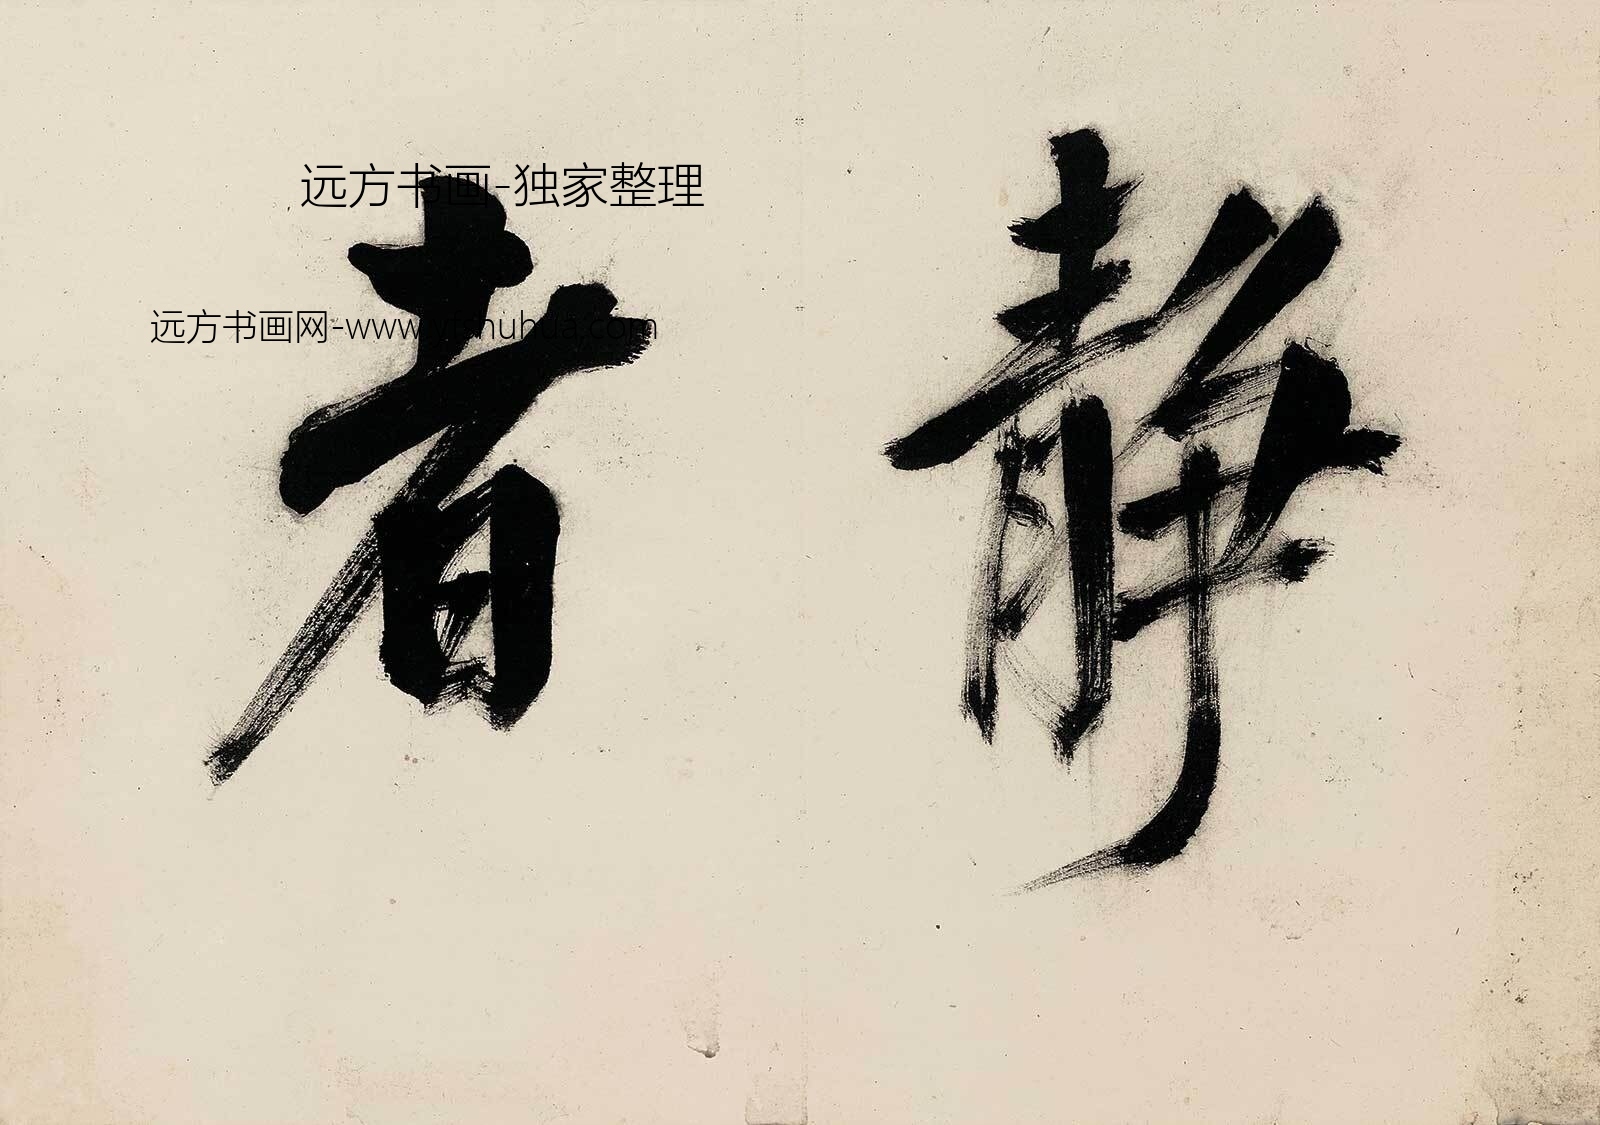 静者
远方书画-独家整理
远方书画网-www.yfshuhua.com